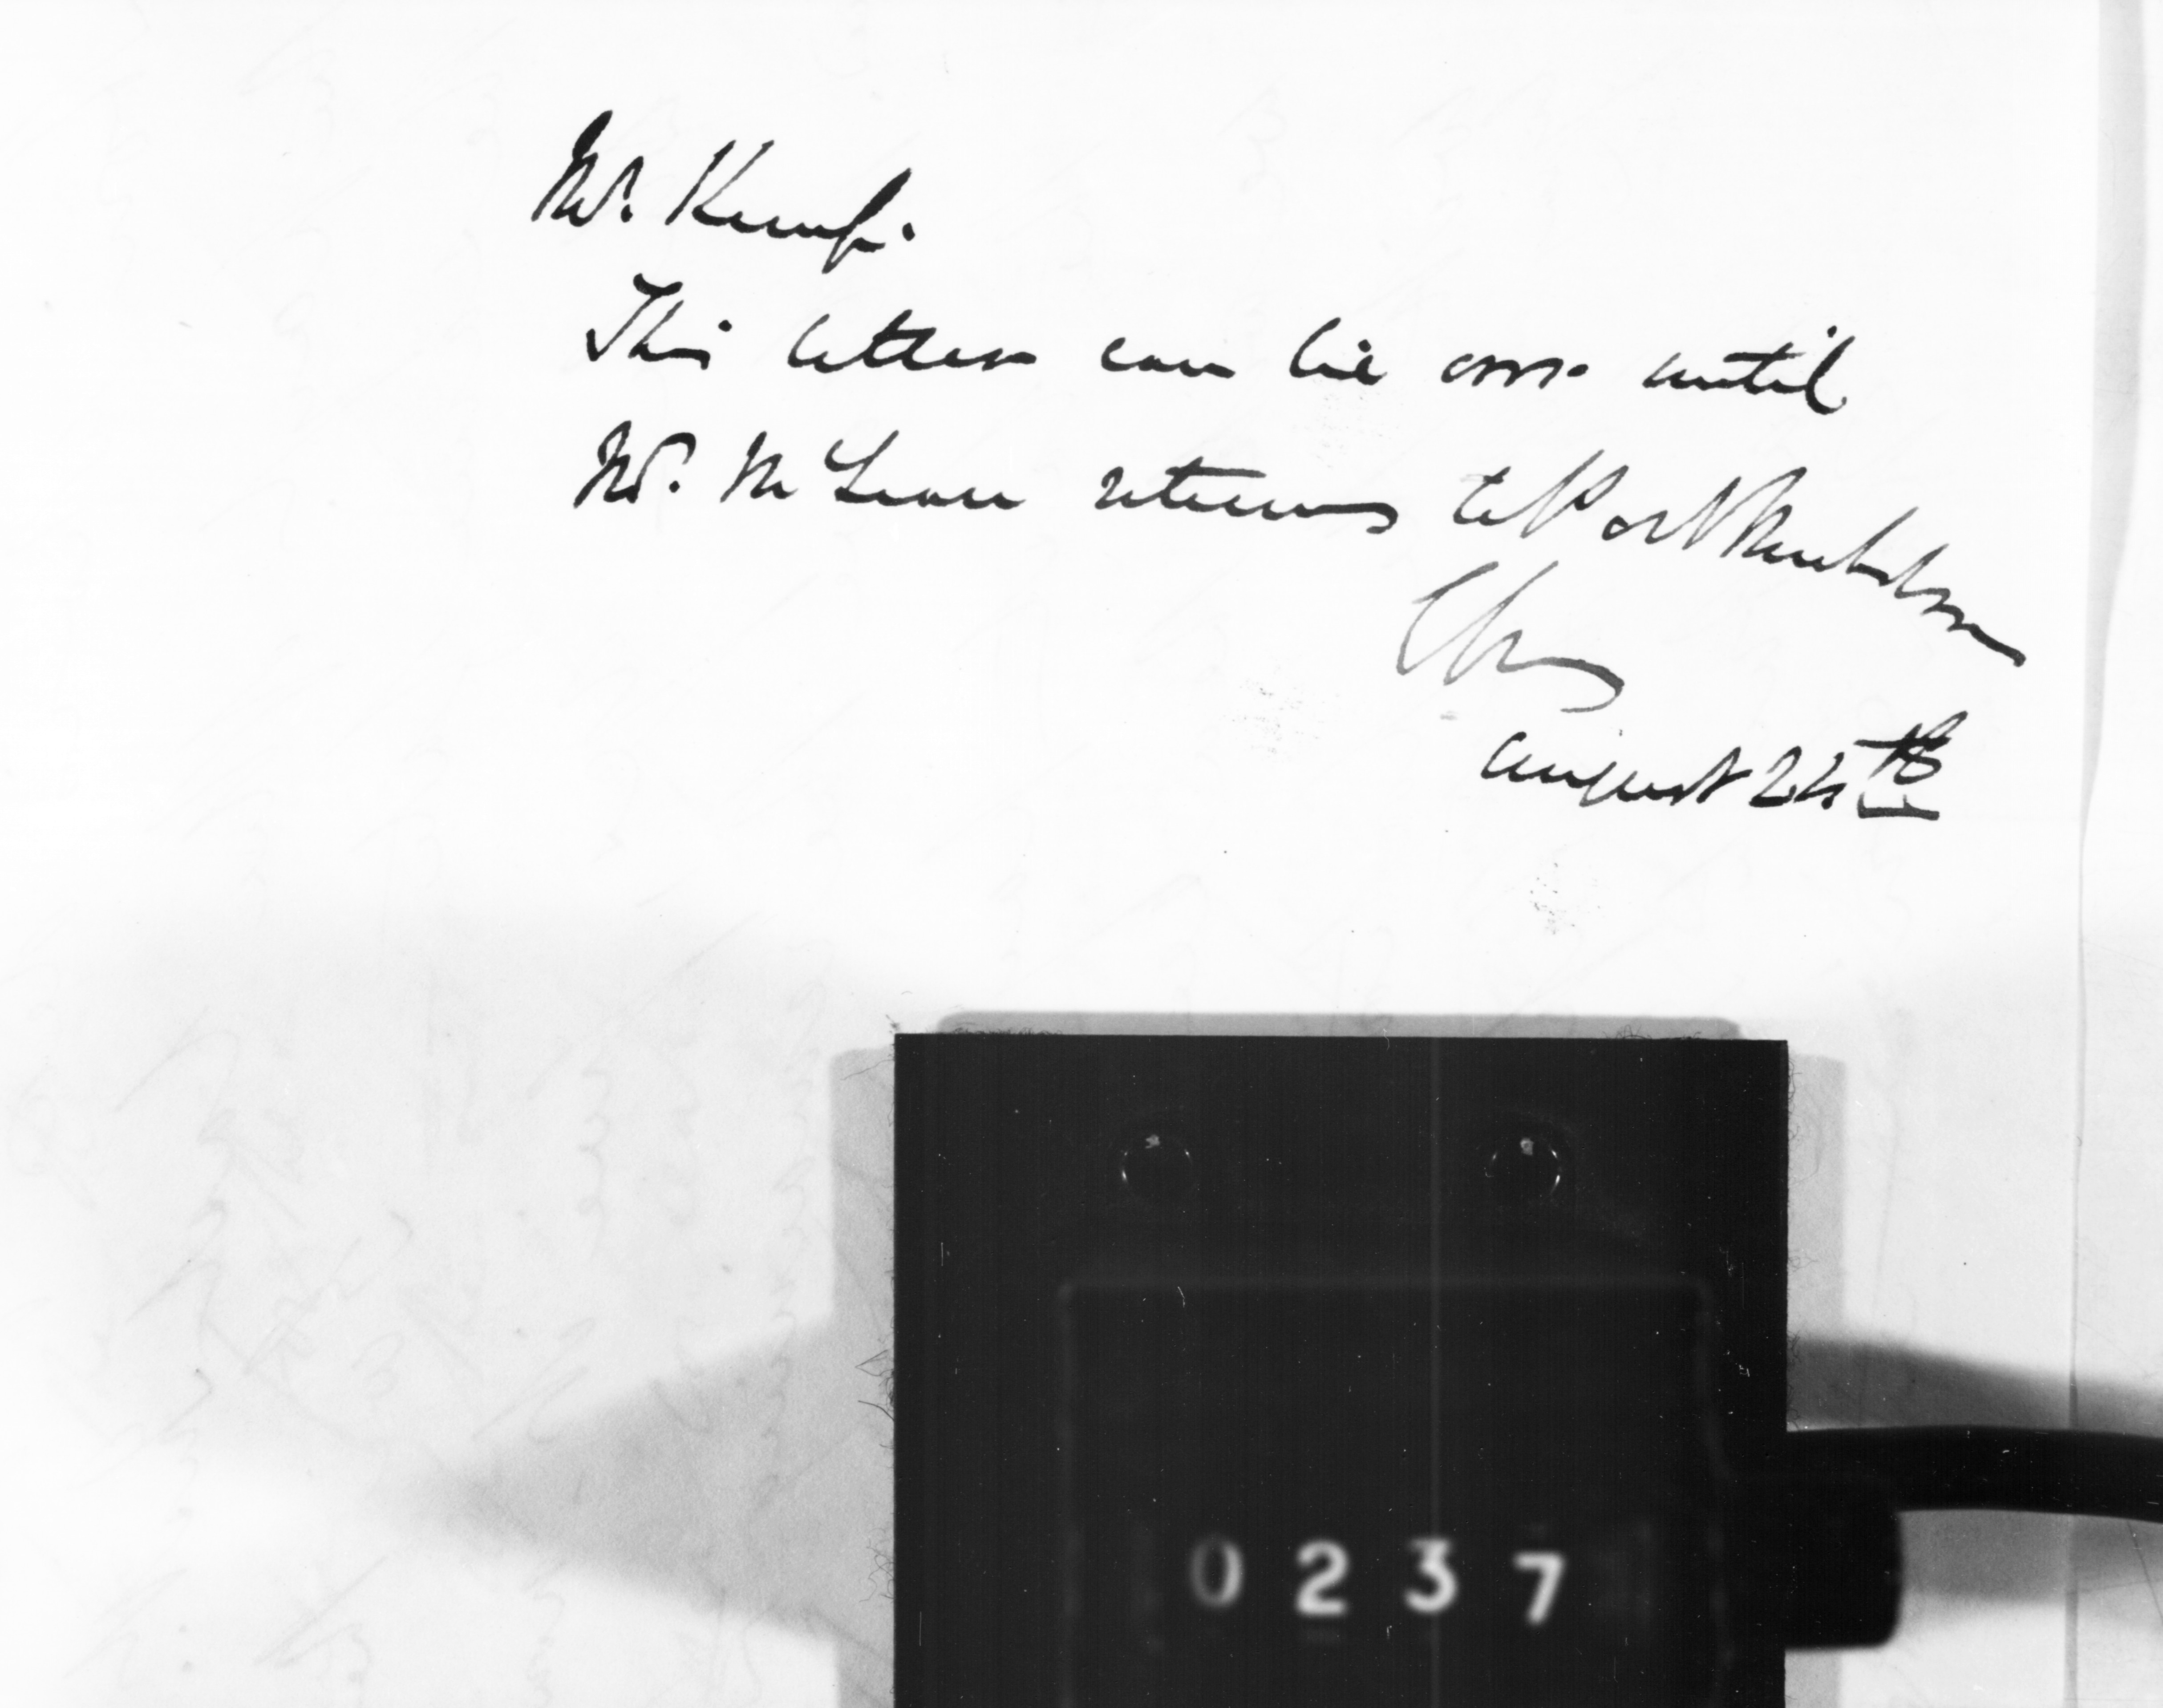 Mr. Kemp.
This letter can lie over until
Mr. McLean returns to Port
august 24th
0237